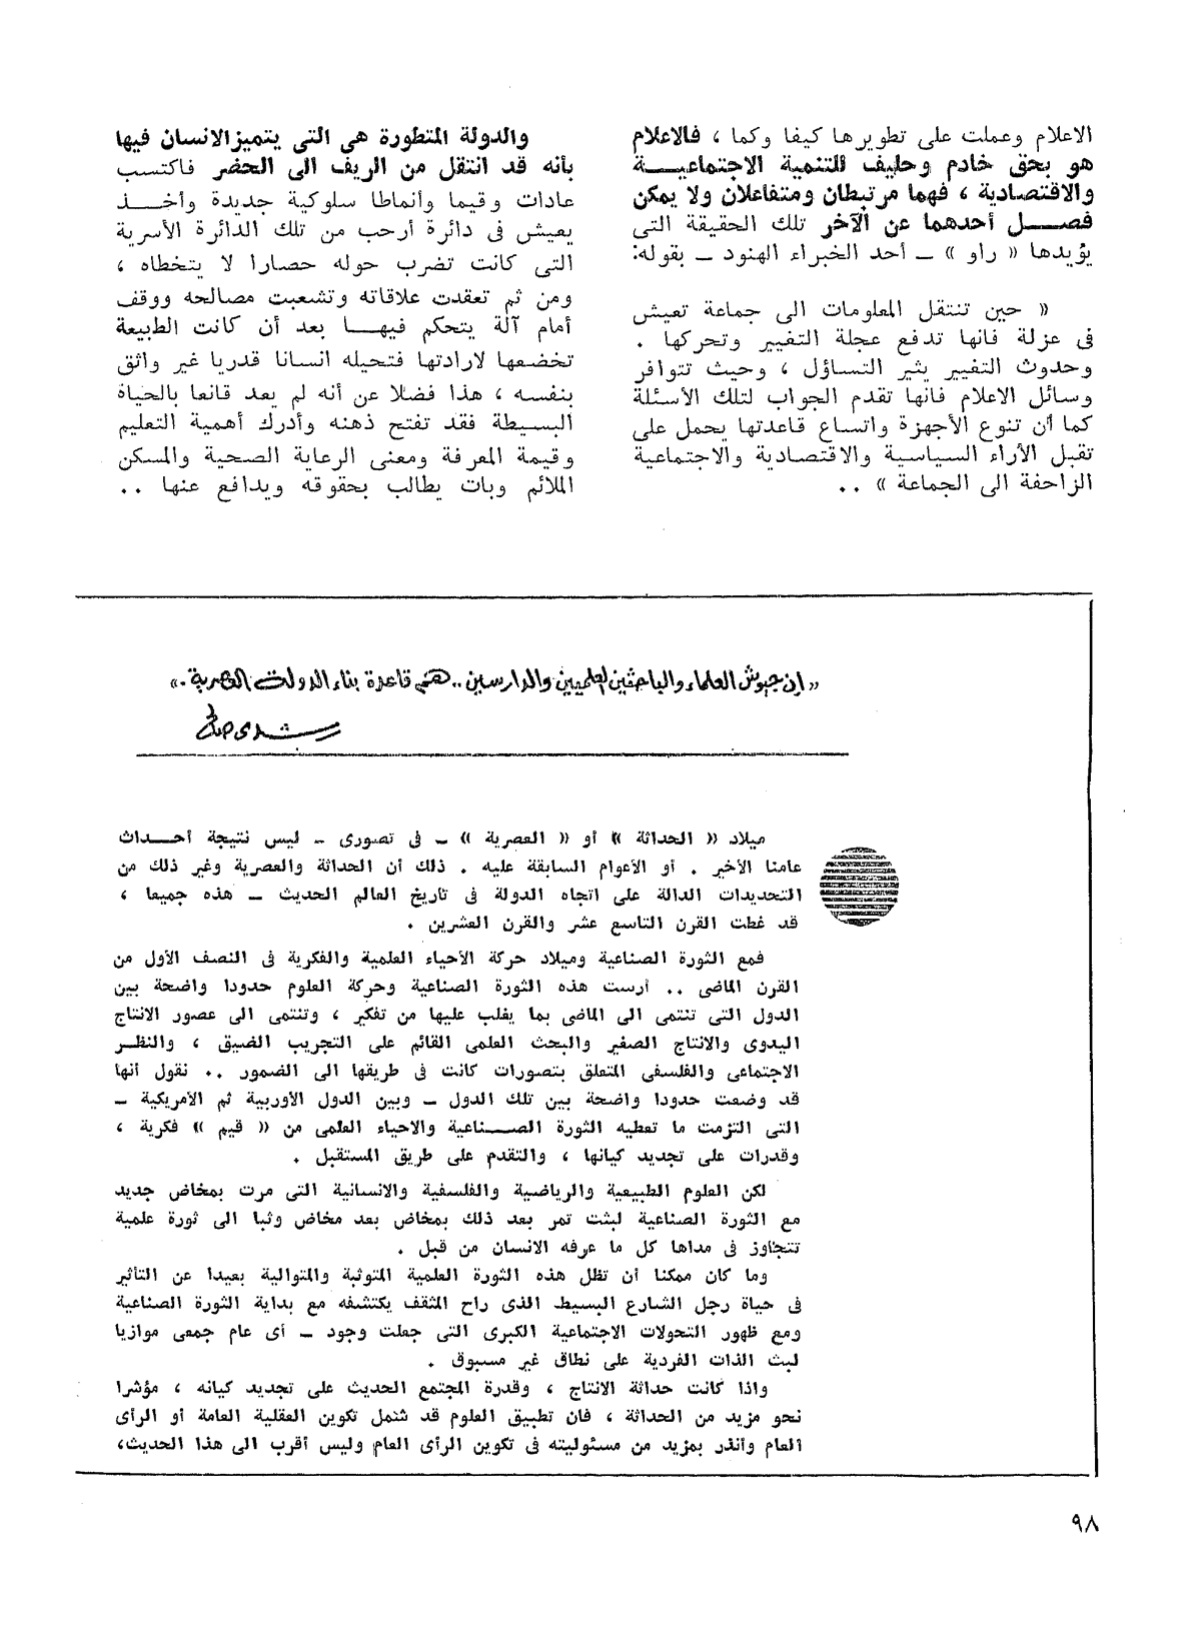 الاعلام وعملت على تطويرها كيفا وكما ، فالاعلام
هو بحق خادم وحليف للتنمية الاجتماعيـــة
والاقتصادية ، فهما مرتبطان ومتفاعلان ولا يمكن
فصـــل أحدهما عن الآخر تلك الحقيقة التى
يؤيدها « راو » ــ أحد الخبراء الهنود ــ بقوله:
« حين تنتقل المعلومات الى جماعة تعيش
فى عزلة فانها تدفع عجلة التغيير وتحركها .
وحدوث التغيير يثير التساؤل ، وحيث تتوافر
وسائل الاعلام فانها تقدم الجواب لتلك الأسئلة
كما أن تنوع الأجهزة واتساع قاعدتها يحمل على
تقبل الأراء السياسية والاقتصادية والاجتماعية
الزاحفة الى الجماعة » ..
والدولة المتطورة هى التى يتميزالانسان فيها
بأنه قد انتقل من الريف الى الحضر فاكتسب
عادات وقيما وأنماطا سلوكية جديدة وأخـــذ
يعيش فى دائرة أرحب من تلك الدائرة الأسرية
التى كانت تضرب حوله حصارا لا يتخطاه ،
ومن ثم تعقدت علاقاته وتشعبت مصالحه ووقف
أمام آلة يتحكم فيهـــا بعد أن كانت الطبيعة
تخضعها لارادتها فتحيله انسانا قدريا غير واثق
بنفسه ، هذا فضلا عن أنه لم يعد قانعا بالحياة
البسيطة فقد تفتح ذهنه وأدرك أهمية التعليم
وقيمة المعرفة ومعنى الرعاية الصحية والمسكن
الملائم وبات يطالب بحقوقه ويدافع عنها ..
« إن جيوش العلماء والباحثين العلميين والدارسين .. هى قاعدة بناء الدولة العصرية . »
رشدى صالح
ميلاد « الحداثة » أو « العصرية » ــ فى تصورى ــ ليس نتيجة أحـــداث
عامنا الأخير . أو الأعوام السابقة عليه . ذلك أن الحداثة والعصرية وغير ذلك من
التحديدات الدالة على اتجاه الدولة فى تاريخ العالم الحديث ــ هذه جميعا ،
قد غطت القرن التاسع عشر والقرن العشرين .
فمع الثورة الصناعية وميلاد حركة الأحياء العلمية والفكرية فى النصف الأول من
القرن الماضى .. أرست هذه الثورة الصناعية وحركة العلوم حدودا واضحة بين
الدول التى تنتمى الى الماضى بما يغلب عليها من تفكير ، وتنتمى الى عصور الانتاج
اليدوى والانتاج الصغير والبحث العلمى القائم على التجريب الضيق ، والنظـر
الاجتماعى والفلسفى المتعلق بتصورات كانت فى طريقها الى الضمور .. نقول أنها
قد وضعت حدودا واضحة بين تلك الدول ــ وبين الدول الأوربية ثم الأمريكية ــ
التى التزمت ما تعطيه الثورة الصـــناعية والاحياء العلمى من « قيم » فكرية ،
وقدرات على تجديد كيانها ، والتقدم على طريق المستقبل .
لكن العلوم الطبيعية والرياضية والفلسفية والانسانية التى مرت بمخاض جديد
مع الثورة الصناعية لبثت تمر بعد ذلك بمخاض بعد مخاض وثبا الى ثورة علمية
تتجاوز فى مداها كل ما عرفه الانسان من قبل .
وما كان ممكنا أن تظل هذه الثورة العلمية المتوثبة والمتوالية بعيدا عن التأثير
فى حياة رجل الشارع البسيط الذى راح المثقف يكتشفه مع بداية الثورة الصناعية
ومع ظهور التحولات الاجتماعية الكبرى التى جعلت وجود ــ أى عام جمعى موازيا
لبث الذات الفردية على نطاق غير مسبوق .
واذا كانت حداثة الانتاج ، وقدرة المجتمع الحديث على تجديد كيانه ، مؤشرا
نحو مزيد من الحداثة ، فان تطبيق العلوم قد شمل تكوين العقلية العامة أو الرأى
العام وأنذر بمزيد من مسئوليته فى تكوين الرأى العام وليس أقرب الى هذا الحديث،
٩٨